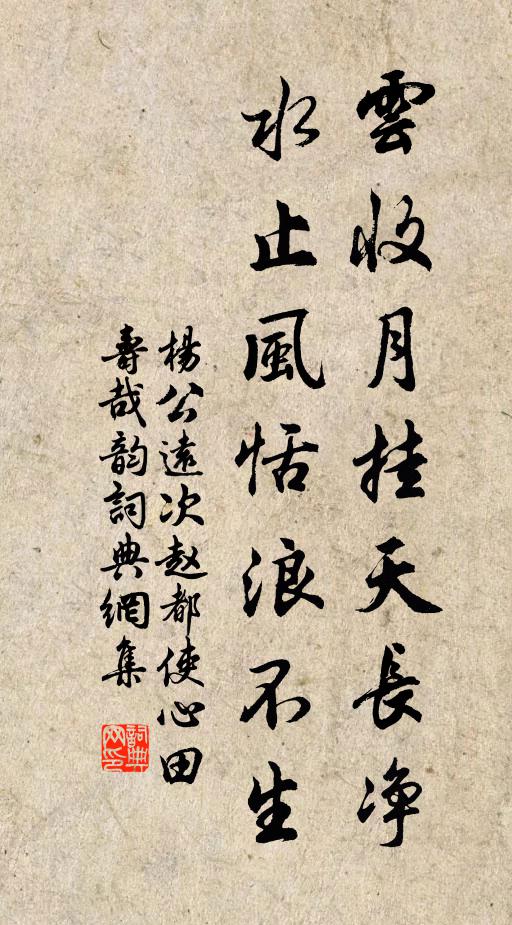 雲收月挂天長净
水止風恬浪不生
楊公遠次赵都使心田
壽哉韵詞典網集
詞典
网印